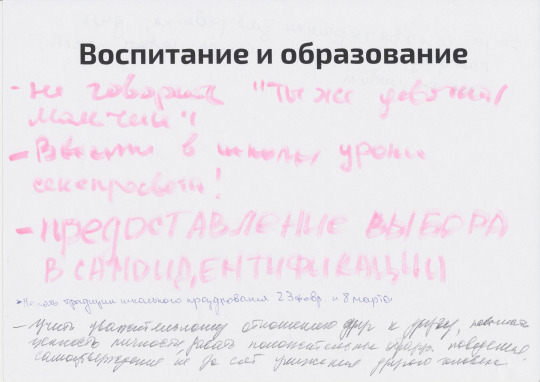 Воспитание и образование
- не говорить "ты же девочка/
мальчик"!
- Ввести в школы уроки
секспросвета!
- ПРЕДОСТАВЛЕНИЕ ВЫБОРА
В САМОИДЕНТИФИКАЦИИ
традиции школьного празднования 23 февр. и 8 марта
- Учить уважительному отношению друг к другу,
ценность личности, давать положительные поведения,
самоутверждение не за счёт унижения другого человека.